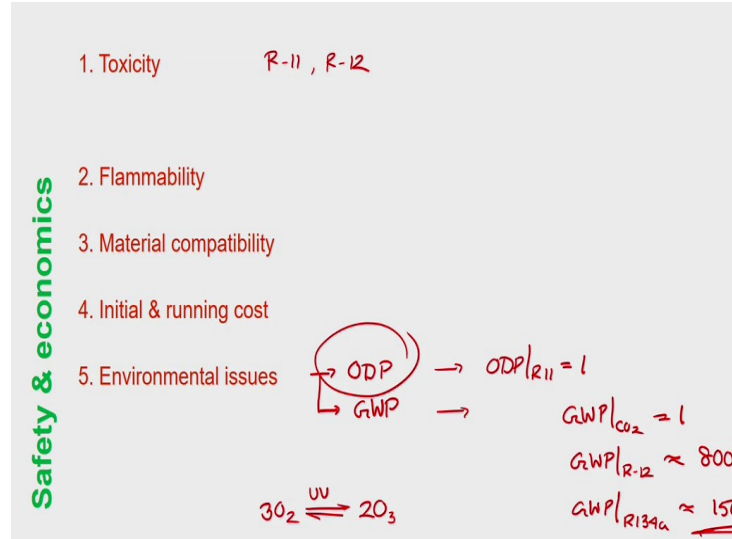 Safety & economics
1. Toxicity R-11, R-12
2. Flammability
3. Material compatibility
4. Initial & running cost
5. Environmental issues → ODP → ODP|R11 = 1
→ GWP → GWP|CO₂ = 1
GWP|R-12 ≈ 800
3O₂ UV ⇌ 2O₃ GWP|R134a ≈